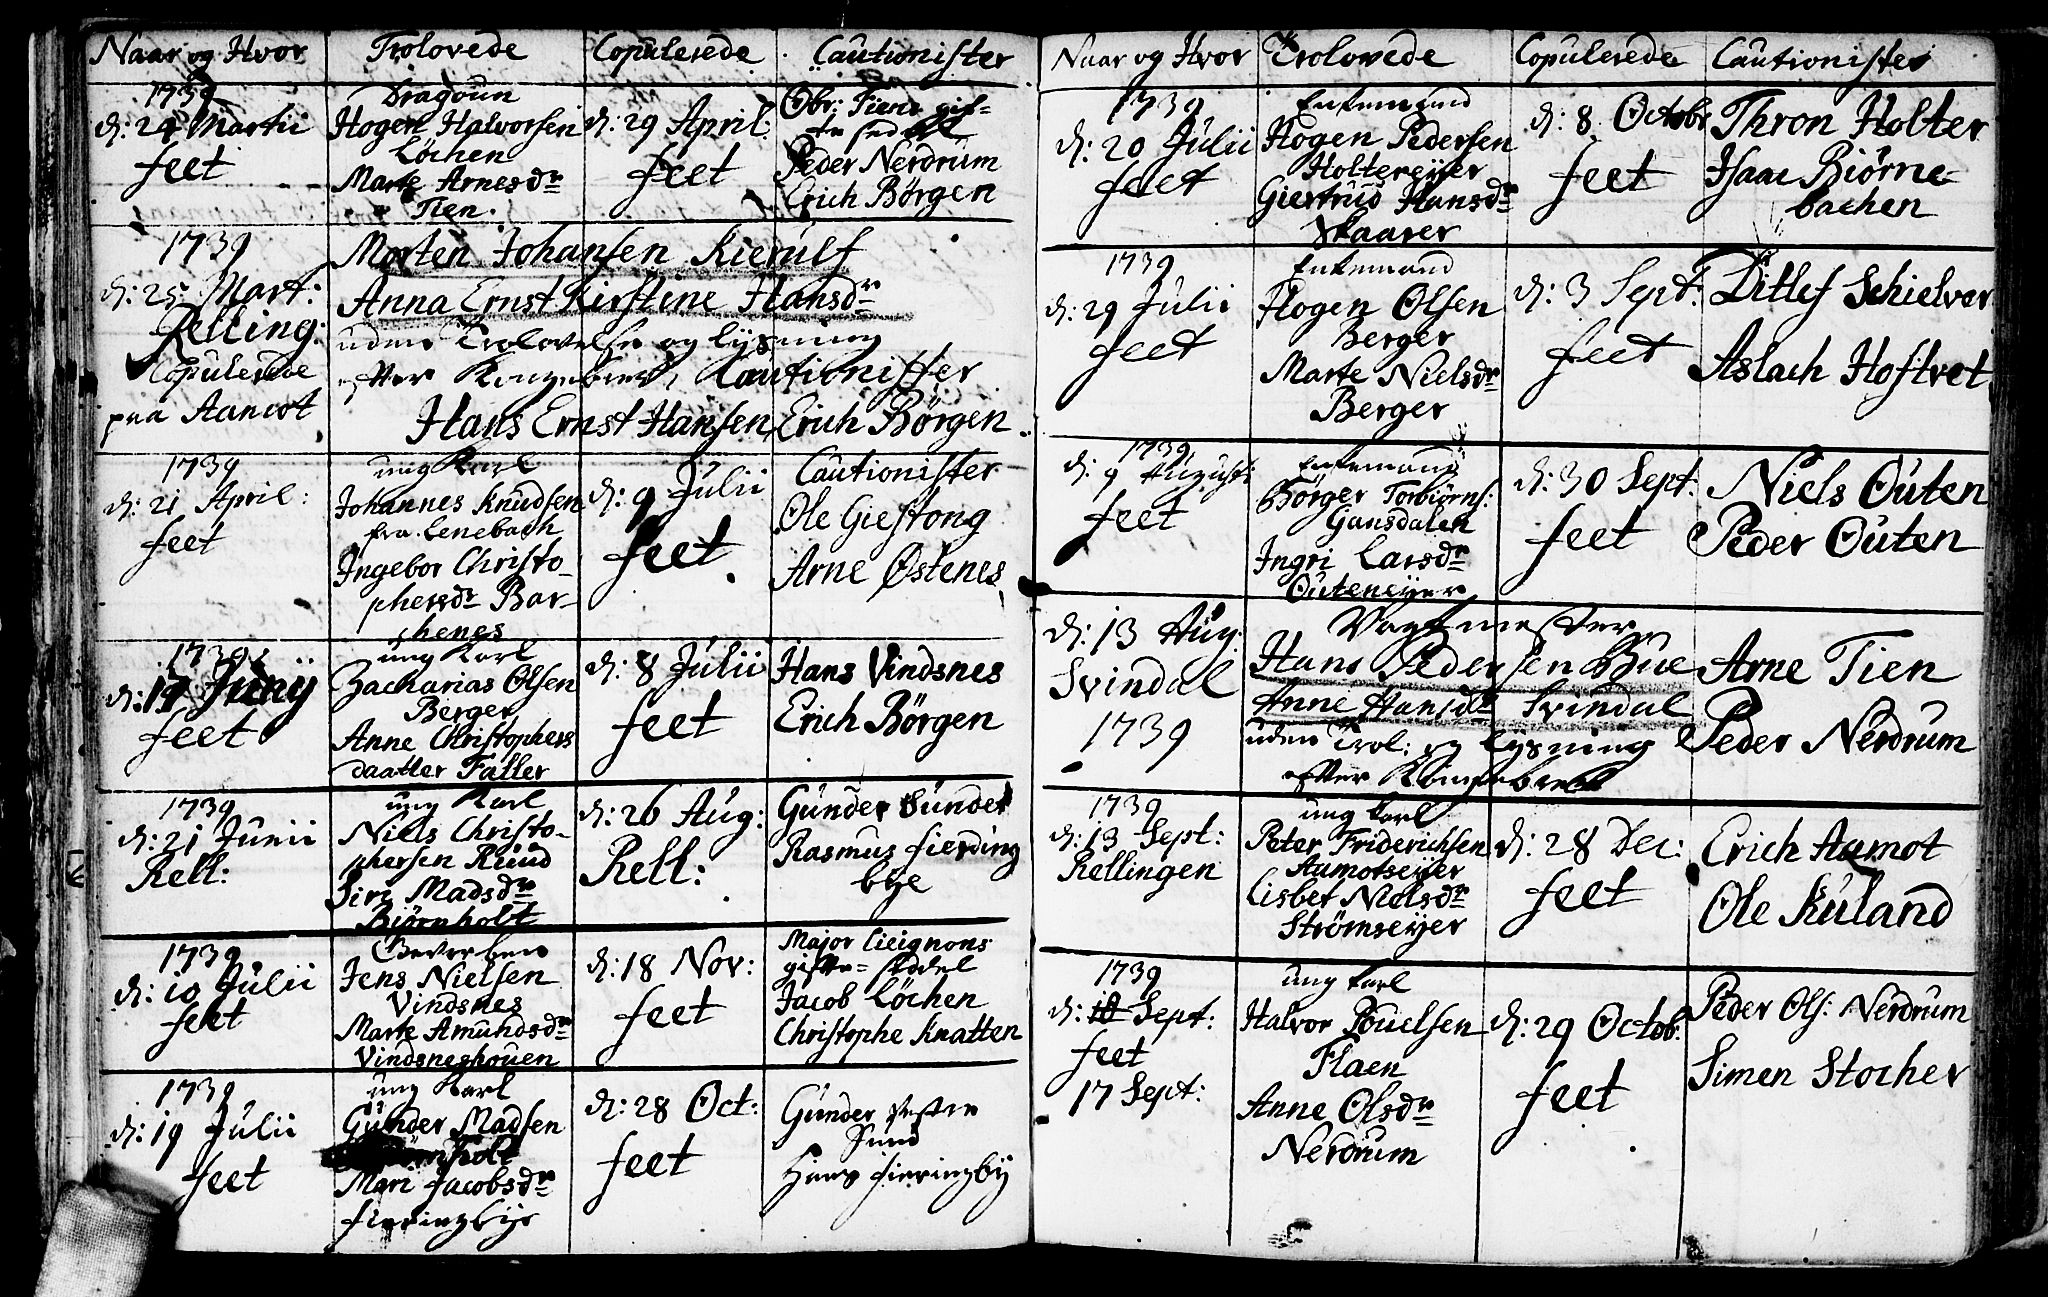 Naar og Hvor
Trolovede
Copulerede
Cautionister
1739
d: 24 Martii
feet
Dragoun
Hogen Halvorsen
Löchen
Marte Arnesdr
Tien.
d: 29 April
feet
Obr: Tiens gif-
te sedel
Peder Nerdrum
Erich Börgen
1739
d: 25 Mart:
Relling:
Copulerede
paa Aamot
Morten Johansen Kierulf
Anna Ernst Kirstine Hansdr
uden Trolovelse og lysning
efter Kongebref, Cautionister
Hans Ernst Hansen, Erich Börgen
1739
d: 21 April:
feet
ung Karl
Johannes Knudsen
fra Enebach
Ingebor Christo-
phersdr Bar-
chenes
d: 9 Julii
feet
Cautionister
Ole Giestong
Arne Østenes
1739
d: 19 Junij
feet
ung Karl
Zacharias Olsen
Berger
Anne Christophers
daatter Faller
d: 8 Julii
feet
Hans Vindsnes
Erich Börgen
1739
d: 21 Junii
Rell:
ung Karl
Niels Christo-
phersen Ruud
Siri Madsdr
Biörnholt
d: 26 Aug:
Rell:
Gunder Sunder
Rasmus fierding
bye
1739
d: 10 Julii
feet
Geworben
Jens Nielsen
Vindsnes
Marte Amundsdr
Vindsneshouen
d: 18 Nov:
feet
Major
gifte-sedel
Jacob Löchen
Christophe Knatten
1739
d: 19 Julii
feet
ung Karl
Gunder Madsen
Mari Jacobsdr
fierringbye
d: 28 Oct:
feet
Gunder
Hans fierringby
Naar og Hvor
Trolovede
Copulerede
Cautionister
1739
d: 20 Julii
feet
Enkemand
Hogen Pedersen
Holtereyer
Giertrud Hansdr
Skaarer
d: 8 Octobr
feet
Thron Holter
Isaac Biörne-
bachen
1739
d: 29 Julii
feet
Enkemand
Hogen Olsen
Berger
Marte Nielsdr
Berger
d: 3 Sept:
feet
Ditlef Schielver
Aslach Hoftvet
1739
d: 9 Augusti
feet
Enkemand
Börger Torbiörns:
Gansdalen
Ingri Larsdr
Outeneyer
d: 30 Sept:
feet
Niels Outen
Peder Outen
d: 13 Aug:
Svindal
1739
Vagtmester
Hans Pedersen Bue
Anne Hansdr Svindal
uden Trol: og lysning
efter Kongebref
Arne Tien
Peder Nerdrum
1739
d: 13 Sept:
Rellingen
ung karl
Peter Friderichsen
Aamotseyer
Lisbet Nielsdr
Strömseyer
d: 28 Dec:
feet
Erich Aamot
Ole Ruland
1739
d: 10 Sept:
feet
17 Sept:
ung karl
Halvor Pouelsen
Flaen
Anne Olsdr
Nerdrum
d: 29 Octob:
feet
Peder Ols: Nerdrum
Simen Stocher